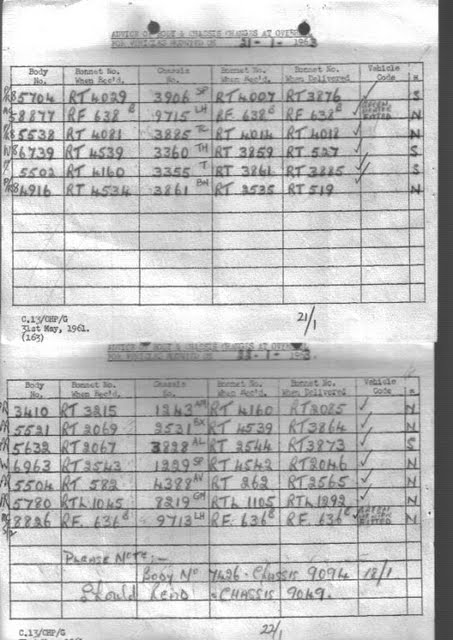 ADVICE OF BODY & CHASSIS CHANGES AT OVERHAUL
FOR VEHICLES 21 - 1 - 1963
Body No. Bonnet No. When Rec'd. Chassis No. Bonnet No. When Rec'd. Bonnet No. When Delivered Vehicle Code
5704 RT 4029 3906 SP RT 4007 RT 3876 ✓ S
8877 RF 638 B 9715 LH RF 638 B RF 638 B ✓ N
5538 RT 4081 3885 TC RT 4014 RT 4018 ✓ N
6739 RT 4539 3360 TH RT 3859 RT 527 ✓ S
5502 RT 4160 3355 T RT 3861 RT 3885 ✓ S
4916 RT 4534 3861 BN RT 2535 RT 519 ✓ N
C.13/CHP/G
31st May, 1961.
(163)
21/1
ADVICE OF BODY & CHASSIS CHANGES AT OVERHAUL
FOR VEHICLES 22 - 1 - 1963
Body No. Bonnet No. When Rec'd. Chassis No. Bonnet No. When Rec'd. Bonnet No. When Delivered Vehicle Code
3410 RT 3215 1243 AM RT 4160 RT 2085 ✓ N
5521 RT 2069 2531 BX RT 4539 RT 3864 ✓ N
5632 RT 2067 3828 AL RT 2544 RT 3873 ✓ S
6963 RT 2543 1229 SP RT 4542 RT 2046 ✓ N
5504 RT 582 4388 AV RT 262 RT 2565 ✓ N
5780 RTL 1045 8219 GM RTL 1105 RTL 1292 ✓ N
8826 RF. 636 B 9713 LH RF. 636 B RF. 636 B ✓ N
PLEASE NOTE:-
BODY No 7426 - CHASSIS 9094 18/1
Should READ - CHASSIS 9049.
C.13/CHP/G
22/1